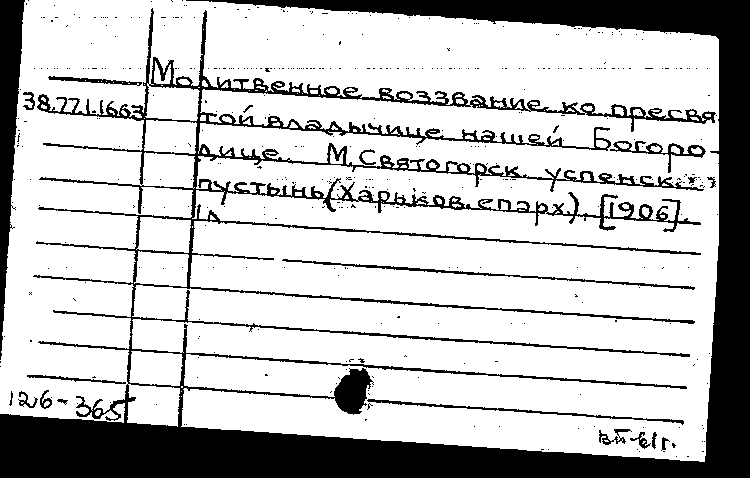 Молитвенное воззвание ко пресвя
38.77.1.1663 той владычице нашей Богоро-
дице. М, Святогорск. успенск.
пустынь, (Харьков. епарх.), [1906].
1л
126-365